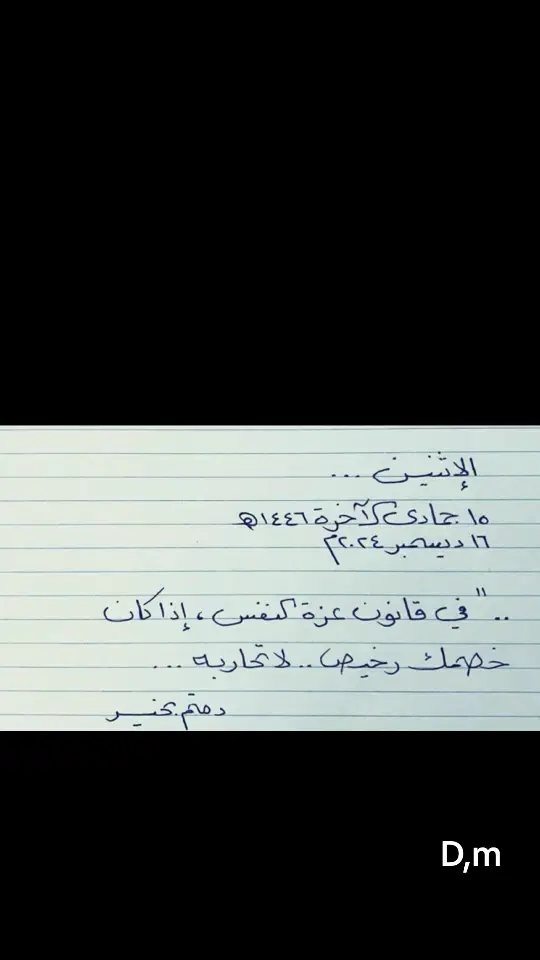 الإثنين ...
١٥ جمادى الآخرة ١٤٤٦هـ
١٦ ديسمبر ٢٠٢٤م
.. " في قانون عزة النفس ، إذا كان
خصمك رخيص .. لا تحاربه ...
دمتم بخير
D,m